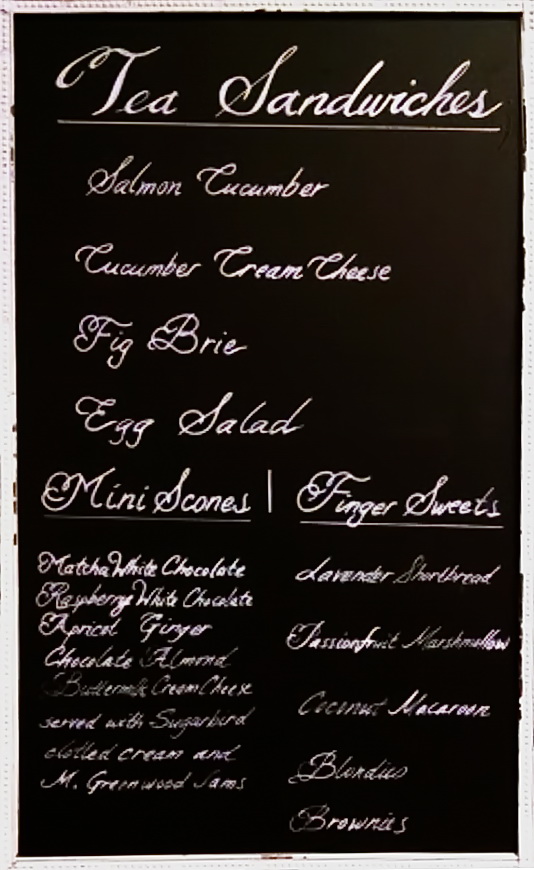 Tea Sandwiches
Salmon Cucumber
Cucumber Cream Cheese
Fig Brie
Egg Salad
Mini Scones | Finger Sweets
Matcha White Chocolate
Raspberry White Chocolate
Apricot Ginger
Chocolate Almond
Buttermilk Cream Cheese
served with Sugarbird
clotted cream and
M. Greenwood Jams
Lavender Shortbread
Passionfruit Marshmallow
Coconut Macaroon
Blondies
Brownies